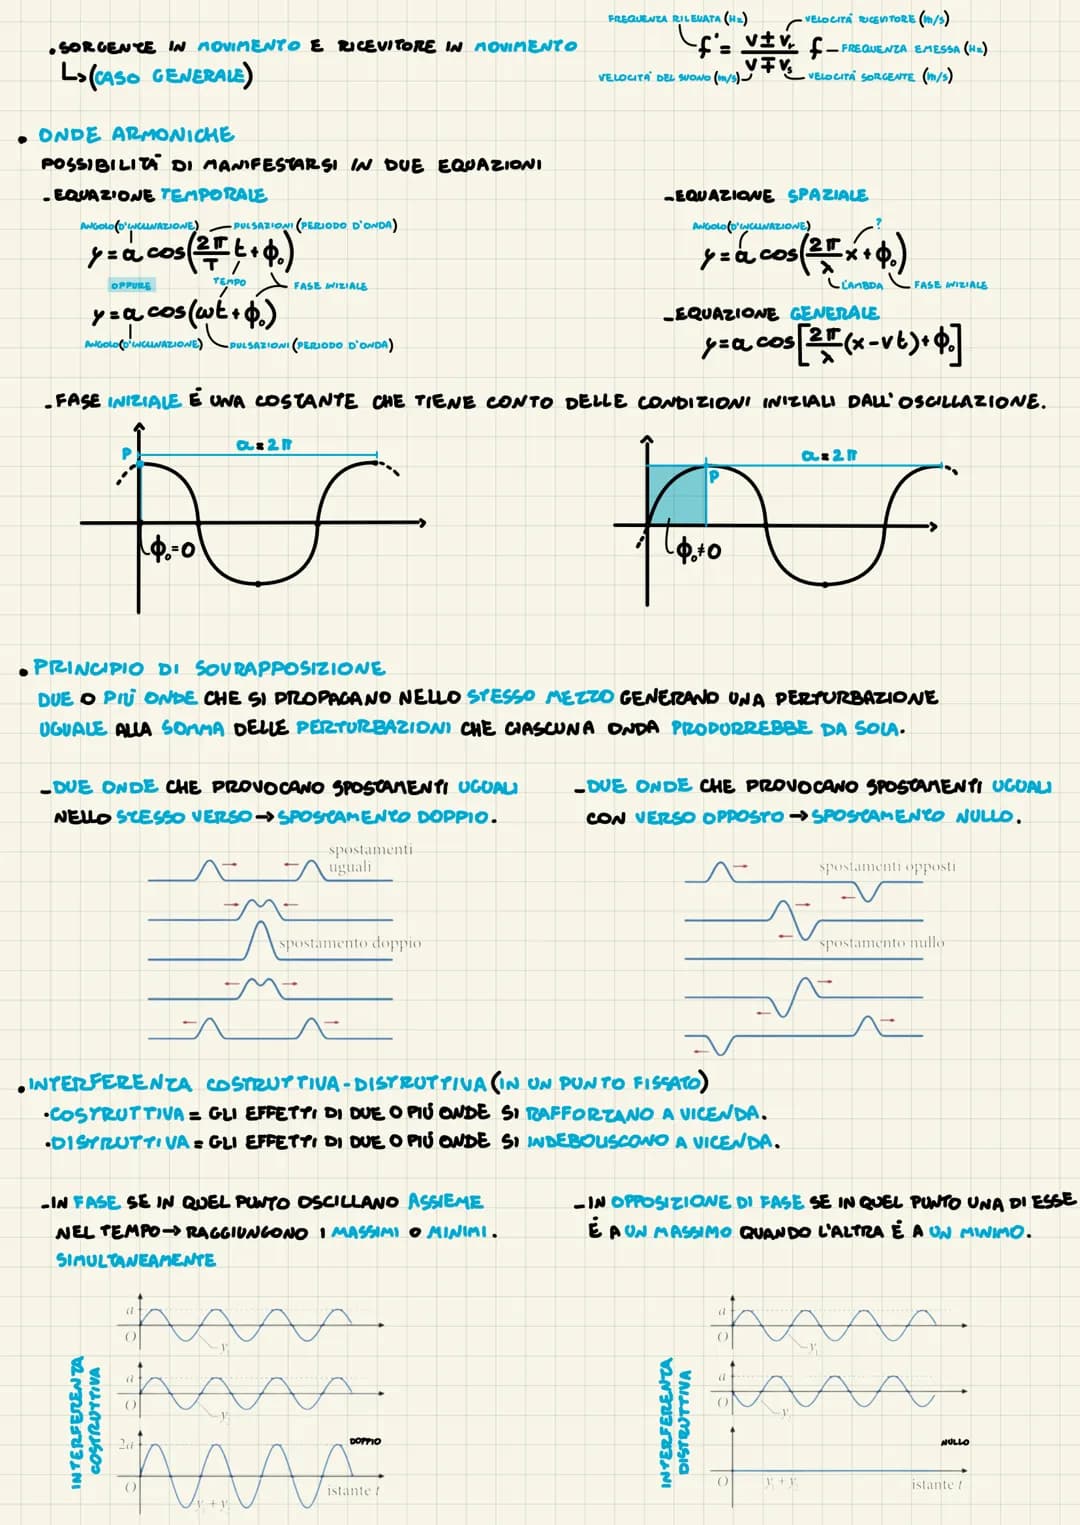 FREQUENZA RILEVATA (Hz)
VELOCITÀ RICEVITORE (m/s)
. SORGENTE IN MOVIMENTO E RICEVITORE IN MOVIMENTO
↳ (CASO GENERALE)
f' = v ± vr / v ∓ vs f
FREQUENZA EMESSA (Hz)
VELOCITÀ DEL SUONO (m/s)
VELOCITÀ SORGENTE (m/s)
• ONDE ARMONICHE
POSSIBILITÀ DI MANIFESTARSI IN DUE EQUAZIONI
- EQUAZIONE TEMPORALE
ANGOLO (D'INCLINAZIONE)
PULSAZIONI (PERIODO D'ONDA)
y = a cos(2π/T t + ϕ₀)
OPPURE
TEMPO
FASE INIZIALE
y = a cos(ωt + ϕ₀)
ANGOLO (D'INCLINAZIONE)
PULSAZIONI (PERIODO D'ONDA)
- EQUAZIONE SPAZIALE
ANGOLO (D'INCLINAZIONE)
?
y = a cos(2π/λ x + ϕ₀)
LAMBDA
FASE INIZIALE
- EQUAZIONE GENERALE
y = a cos[2π/λ (x - vt) + ϕ₀]
- FASE INIZIALE É UNA COSTANTE CHE TIENE CONTO DELLE CONDIZIONI INIZIALI DALL'OSCILLAZIONE.
P
a = 2π
ϕ₀ = 0
a = 2π
P
ϕ₀ ≠ 0
• PRINCIPIO DI SOVRAPPOSIZIONE
DUE O PIÚ ONDE CHE SI PROPAGANO NELLO STESSO MEZZO GENERANO UNA PERTURBAZIONE
UGUALE ALLA SOMMA DELLE PERTURBAZIONI CHE CIASCUNA ONDA PRODURREBBE DA SOLA.
- DUE ONDE CHE PROVOCANO SPOSTAMENTI UGUALI
NELLO STESSO VERSO → SPOSTAMENTO DOPPIO.
spostamenti
uguali
spostamento doppio
- DUE ONDE CHE PROVOCANO SPOSTAMENTI UGUALI
CON VERSO OPPOSTO → SPOSTAMENTO NULLO.
spostamenti opposti
spostamento nullo
• INTERFERENZA COSTRUTTIVA - DISTRUTTIVA (IN UN PUNTO FISSATO)
• COSTRUTTIVA = GLI EFFETTI DI DUE O PIÚ ONDE SI RAFFORZANO A VICENDA.
• DISTRUTTIVA = GLI EFFETTI DI DUE O PIÚ ONDE SI INDEBOLISCONO A VICENDA.
- IN FASE SE IN QUEL PUNTO OSCILLANO ASSIEME
NEL TEMPO → RAGGIUNGONO I MASSIMI O MINIMI.
SIMULTANEAMENTE
- IN OPPOSIZIONE DI FASE SE IN QUEL PUNTO UNA DI ESSE
É A UN MASSIMO QUANDO L'ALTRA É A UN MINIMO.
INTERFERENZA
COSTRUTTIVA
a
O
y₁
a
O
y₂
2a
O
DOPPIO
y₁ + y₂
istante t
INTERFERENZA
DISTRUTTIVA
a
O
y₁
a
O
y₂
NULLO
O
y₁ + y₂
istante t